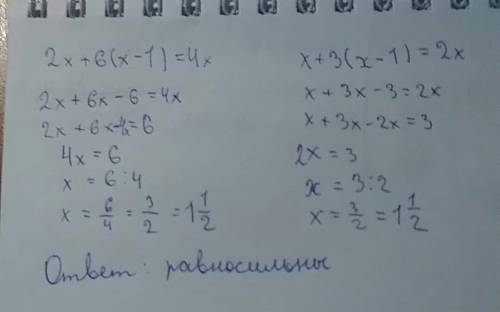 2x+6(x-1)=4x
2x+6x-6=4x
2x+6x-4x=6
4x=6
x=6:4
x=6/4=3/2=1 1/2
x+3(x-1)=2x
x+3x-3=2x
x+3x-2x=3
2x=3
x=3:2
x=3/2=1 1/2
Ответ: равносильны